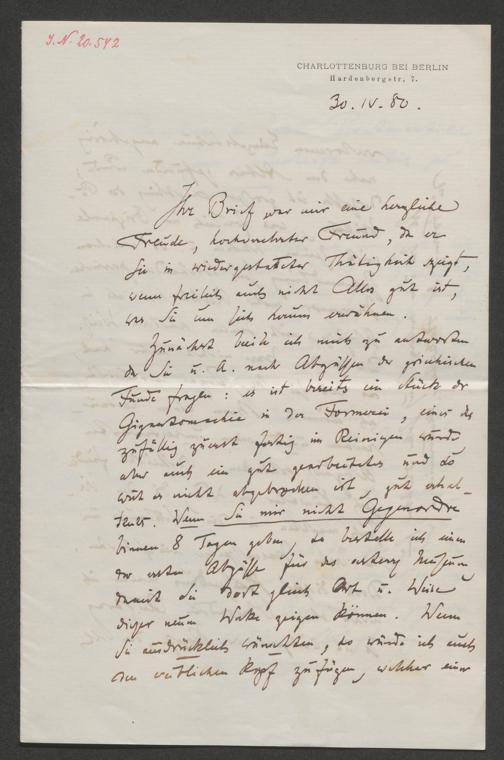 I.N. 20.542
CHARLOTTENBURG BEI BERLIN
Hardenbergstr. 7.
30. IV. 80.
Ihr Brief war mir eine herzliche
Freude, hochverehrter Freund, da er
Sie in wiedergestatteter Thätigkeit zeigt,
wenn freilich auch nicht Alles gut ist,
was Sie um sich herum erwähnen.
Zunächst beeile ich mich zu antworten
da Sie u. A. nach Abgüssen der griechischen
Funde fragen: es ist bereits ein Stück der
Gigantomachie in der Formerei, eines das
zufällig zuerst fertig im Reinigen wurde
aber auch ein gut gearbeitetes und so
weit es nicht abgebrochen ist, gut erhal-
tenes. Wenn Sie mir nicht Gegenordre
binnen 8 Tagen geben, so bestelle ich einen
der ersten Abgüsse für das Museum
damit Sie dort gleich Art u. Weise
dieser neuen Werke zeigen können. Wenn
Sie ausdrücklich wünschten, so würde ich auch
den weiblichen Kopf zufügen, welcher einer